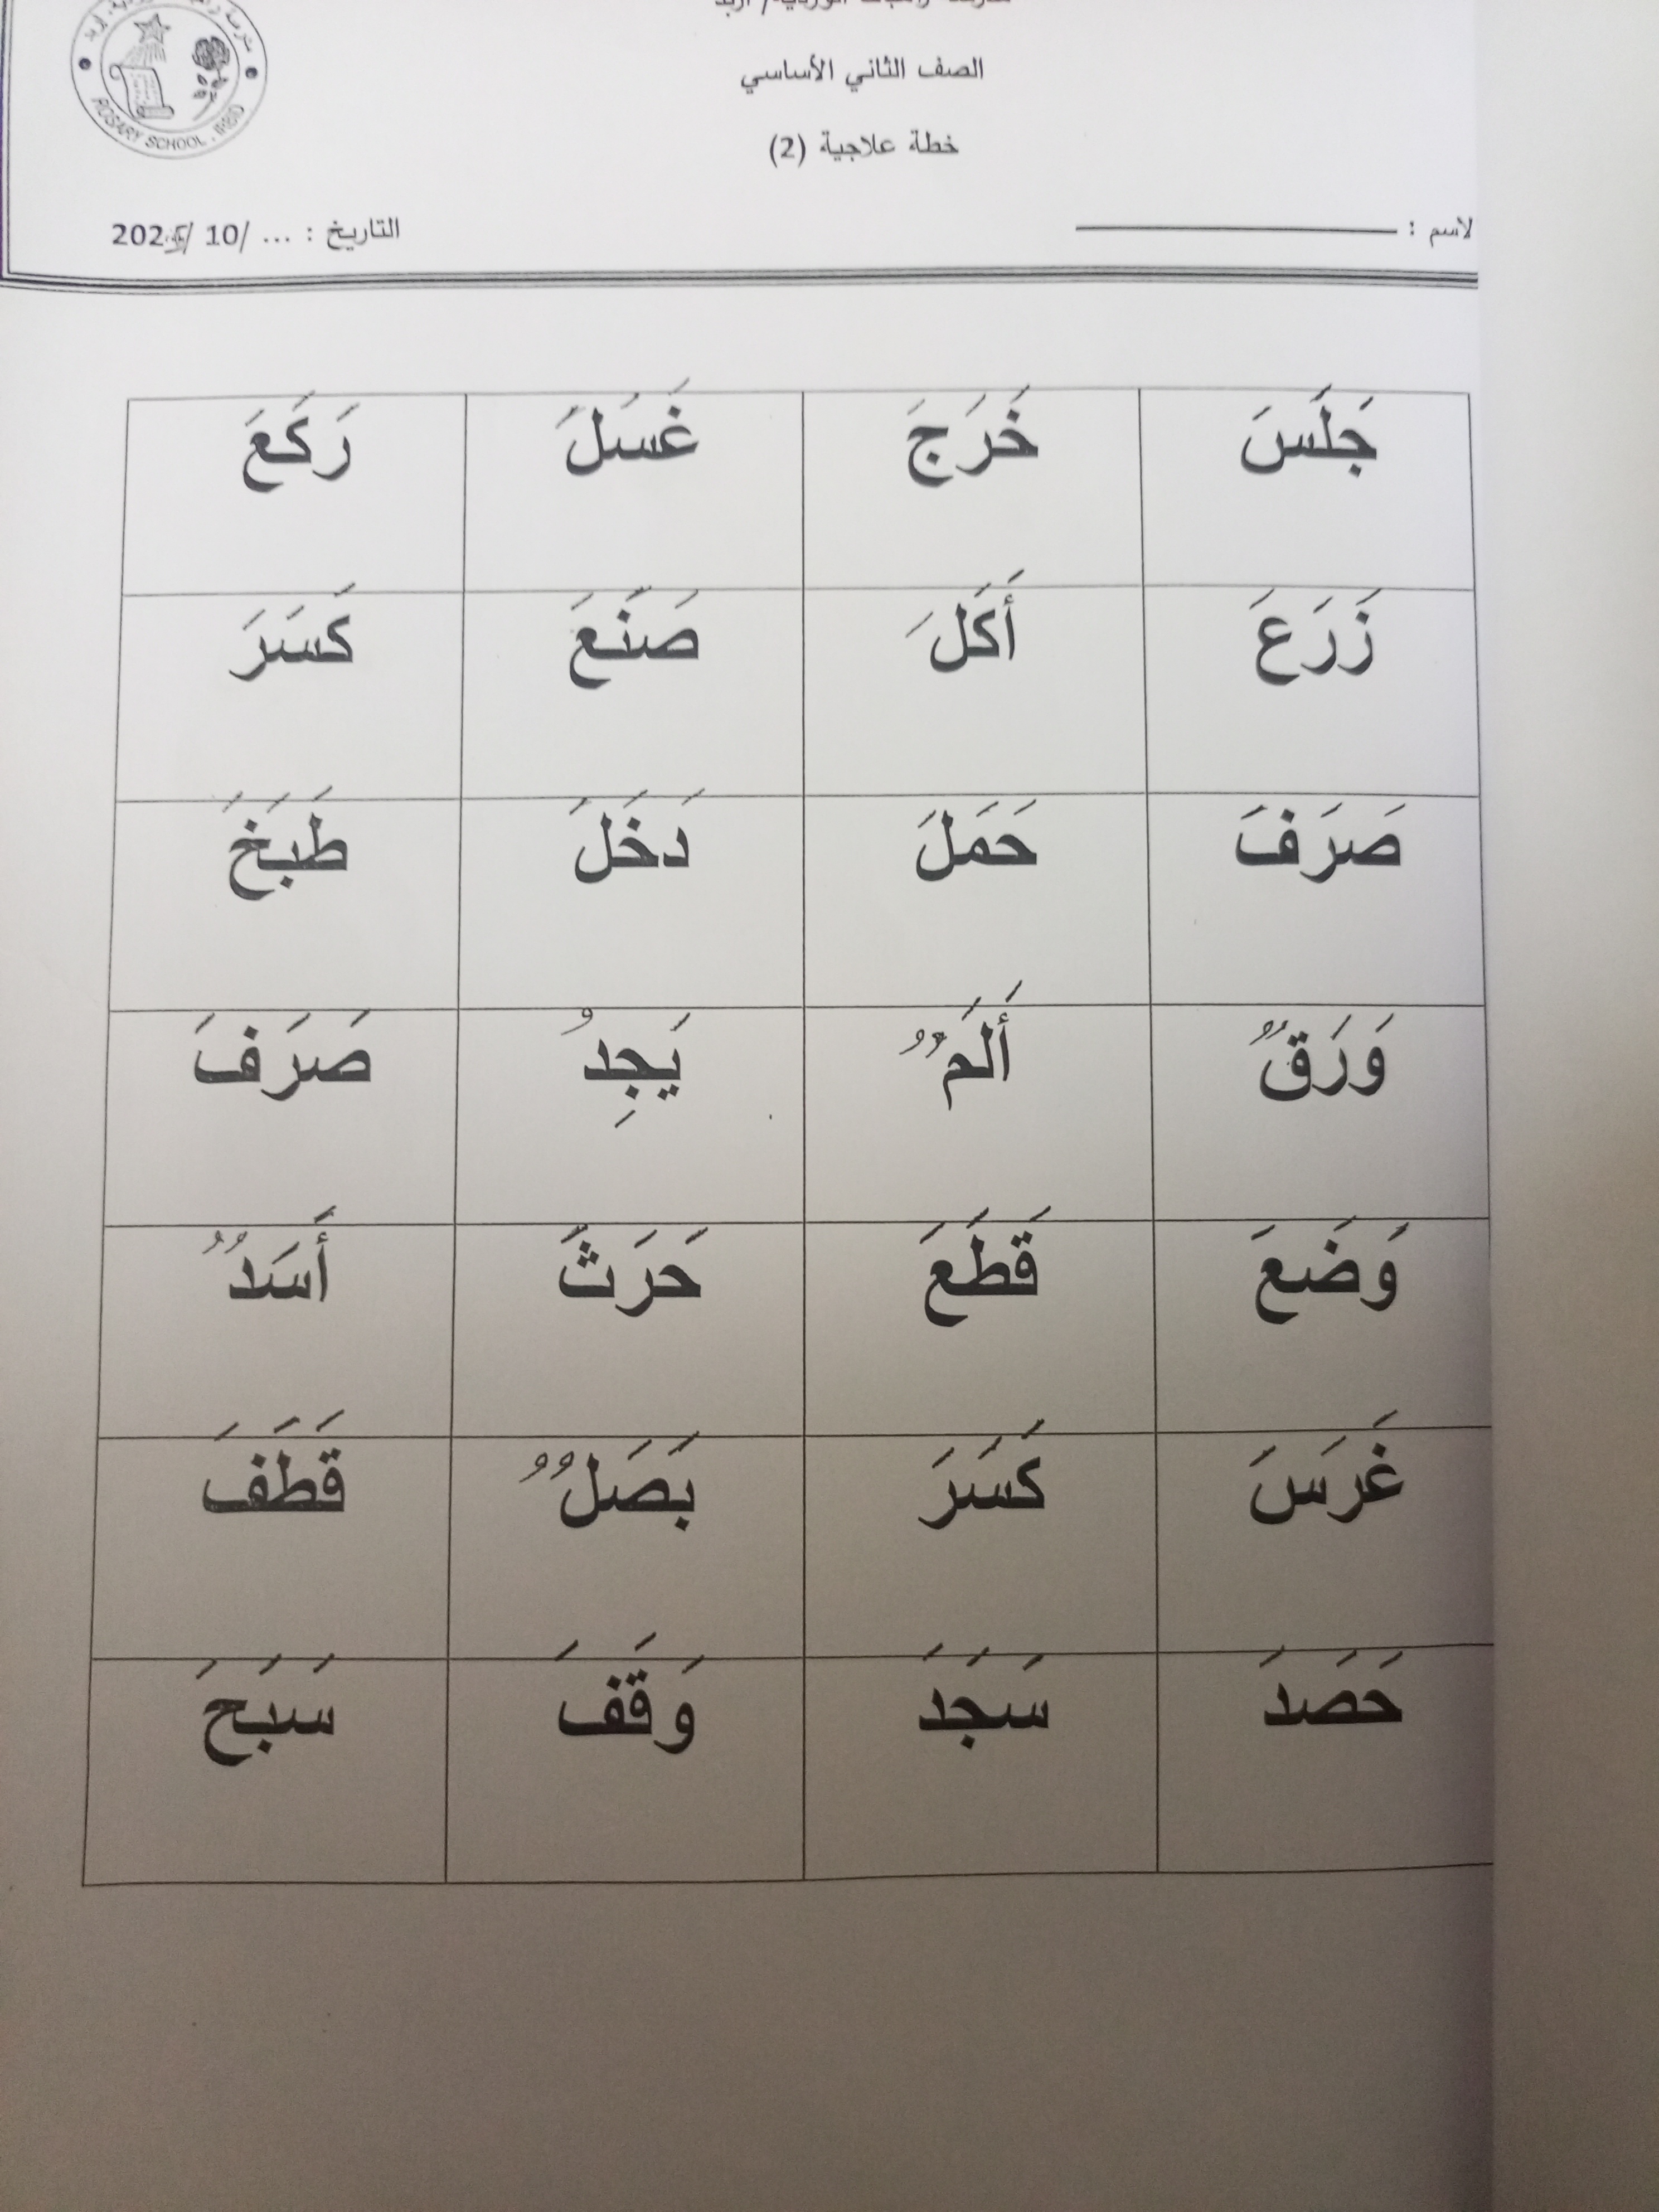 أربد
الصف الثاني الأساسي
خطة علاجية (2)
لاسم : ــــــــــــــــ التاريخ : ... /10 /2025
ROSARY SCHOOL . IRBID
جَلَسَ خَرَجَ غَسَلَ رَكَعَ
زَرَعَ أَكَلَ صَنَعَ كَسَرَ
صَرَفَ حَمَلَ دَخَلَ طَبَخَ
وَرَقٌ أَلَمٌ يَجِدُ صَرَفَ
وَضَعَ قَطَعَ حَرَثَ أَسَدٌ
غَرَسَ كَسَرَ بَصَلٌ قَطَفَ
حَصَدَ سَجَدَ وَقَفَ سَبَحَ